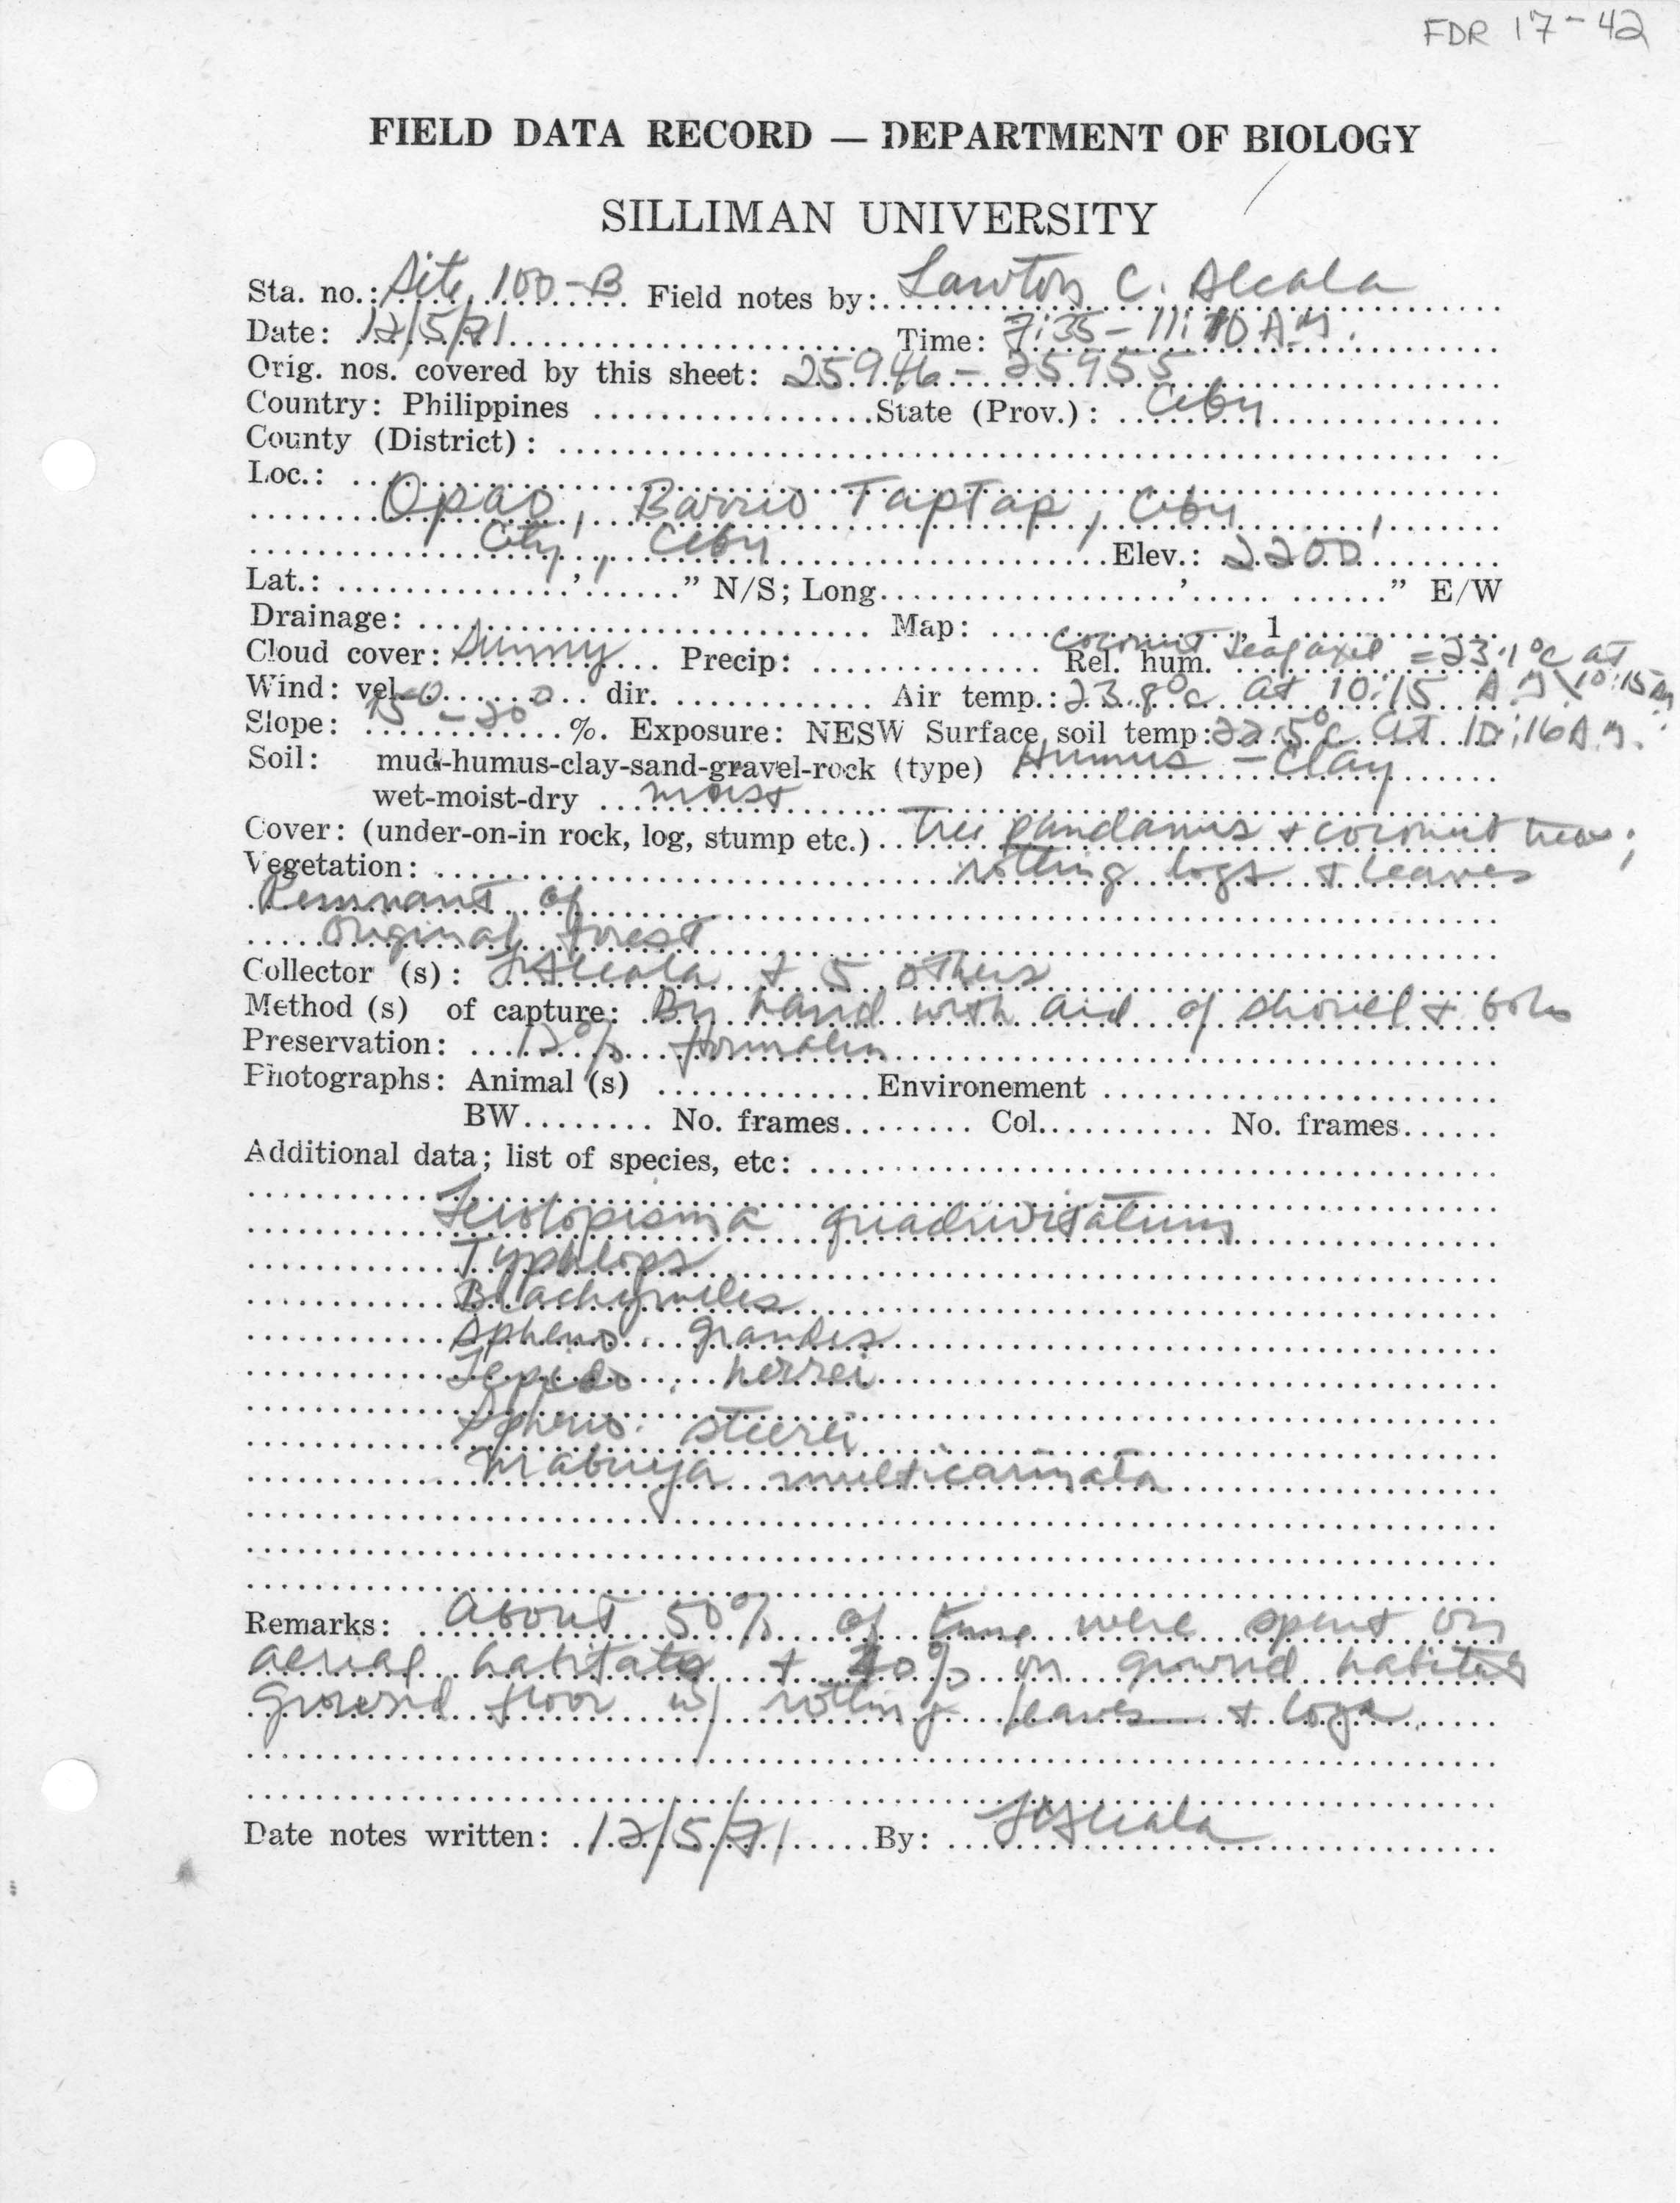 FDR 17-42
FIELD DATA RECORD — DEPARTMENT OF BIOLOGY
SILLIMAN UNIVERSITY
Sta. no.: Site 100-B Field notes by: Lawton C. Alcala
Date: 12/5/71 Time: 7:35 - 11:10 A.M.
Orig. nos. covered by this sheet: 25946 - 25955
Country: Philippines State (Prov.): Cebu
County (District):
Loc.:
Opao, Barrio Taptap, Cebu
City, Cebu Elev.: 2200'
Lat.: ' " N/S; Long. ' " E/W
Drainage: Map: , 1
Cloud cover: Sunny Precip: Rel. hum. coconut leaf axil = 23.1°C at 10:15 AM
Wind: vel. 0 0 dir. Air temp.: 23.8°C at 10:15 A.M.
Slope: 15 - 20 %. Exposure: NESW Surface soil temp: 22.5°C at 10:16 A.M.
Soil: mud-humus-clay-sand-gravel-rock (type) Humus - clay
wet-moist-dry moist
Cover: (under-on-in rock, log, stump etc.) Tree pandanus + coconut trees;
Vegetation: rotting logs + leaves
Remnant of
original forest
Collector (s): LAlcala + 5 others
Method (s) of capture: By hand with aid of shovel + bolo
Preservation: 12% formalin
Photographs: Animal (s) Environement
BW No. frames Col. No. frames
Additional data; list of species, etc:
Leiolopisma quadrivittatum
Typhlops
Brachymeles
Spheno. grandis
Lepido. herrei
Spheno. steerei
Mabuya multicarinata
Remarks: About 50% of time were spent on
aerial habitats + on ground habitats
ground floor w/ rotting leaves + logs.
Date notes written: 12/5/71 By: LCAlcala